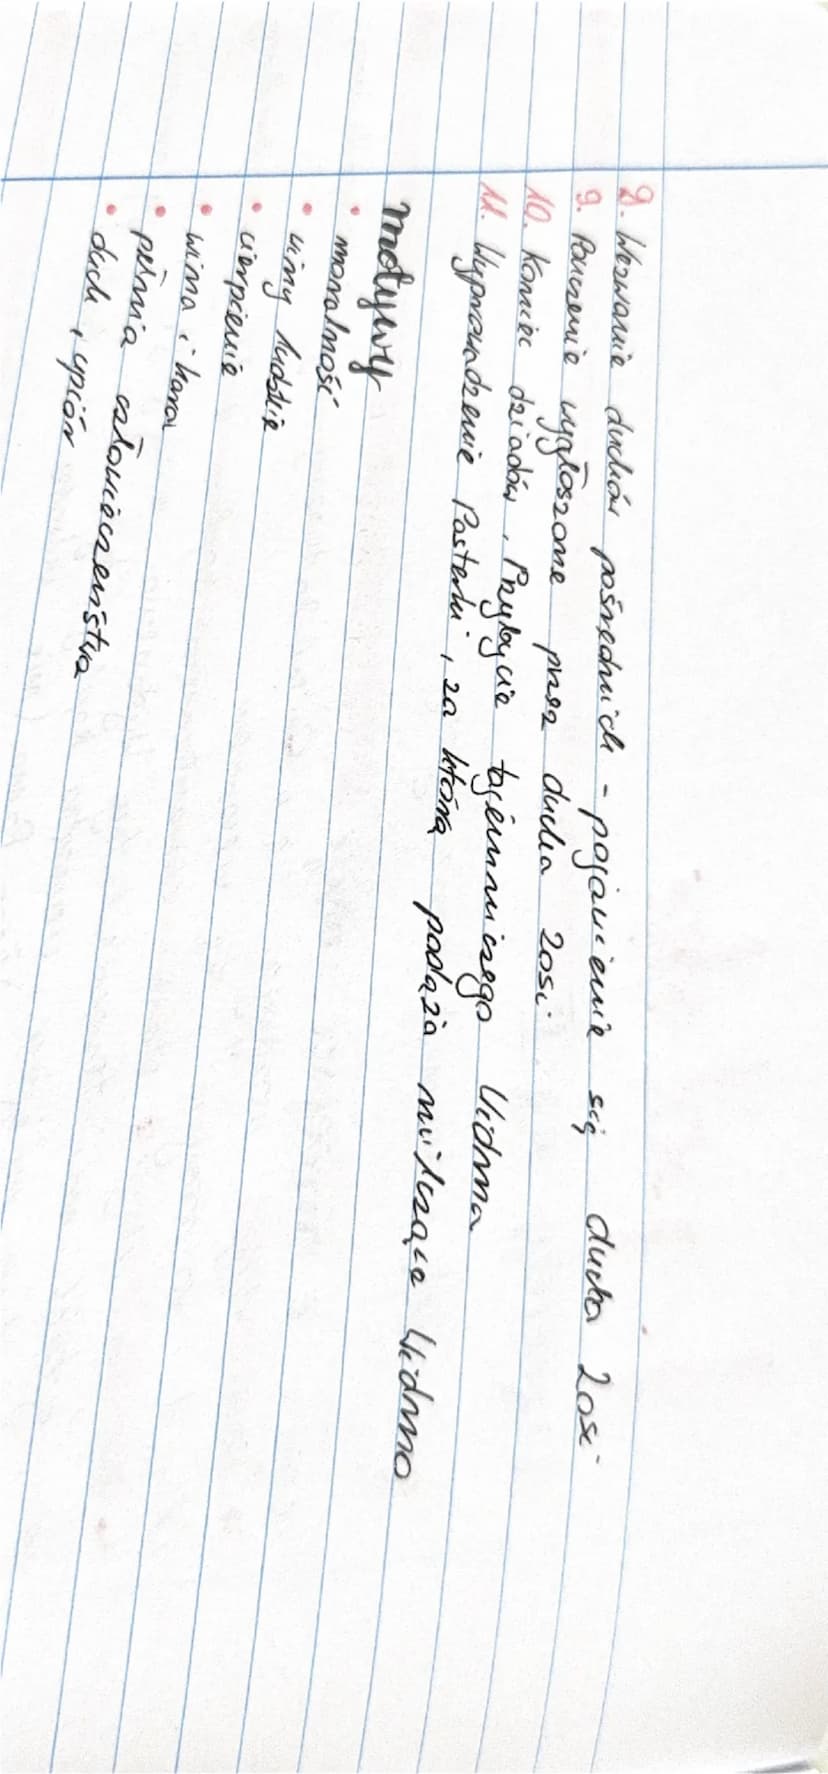 8. Wezwanie duchów pośrednich - pojawienie się ducha Zosi
9. Pouczenie wygłoszone przez ducha Zosi
10. Koniec dziadów, Przybycie tajemniczego Widma
11. Wyprowadzenie Pasterki, za którą podąża milczące Widmo
Motywy
• moralność
• winy ludzkie
• cierpienie
• wina i kara
• pełnia człowieczeństwa
• duch, upiór